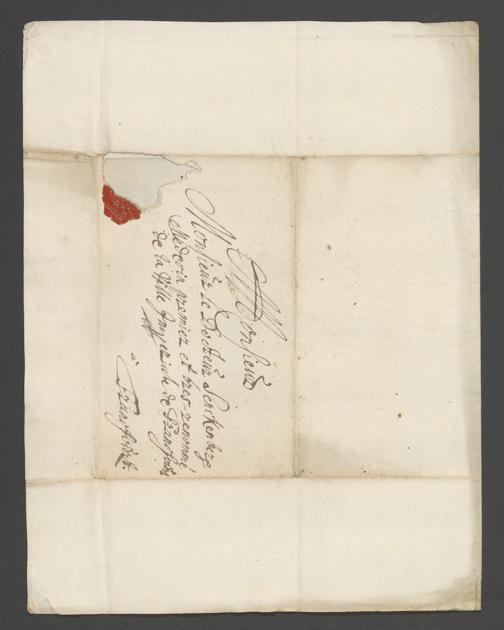 Monsieur
Monsieur le Docteur Senckenberg
Médecin premier et tres-renommé
de la Ville Imperiale de Francfort
à
Francfort